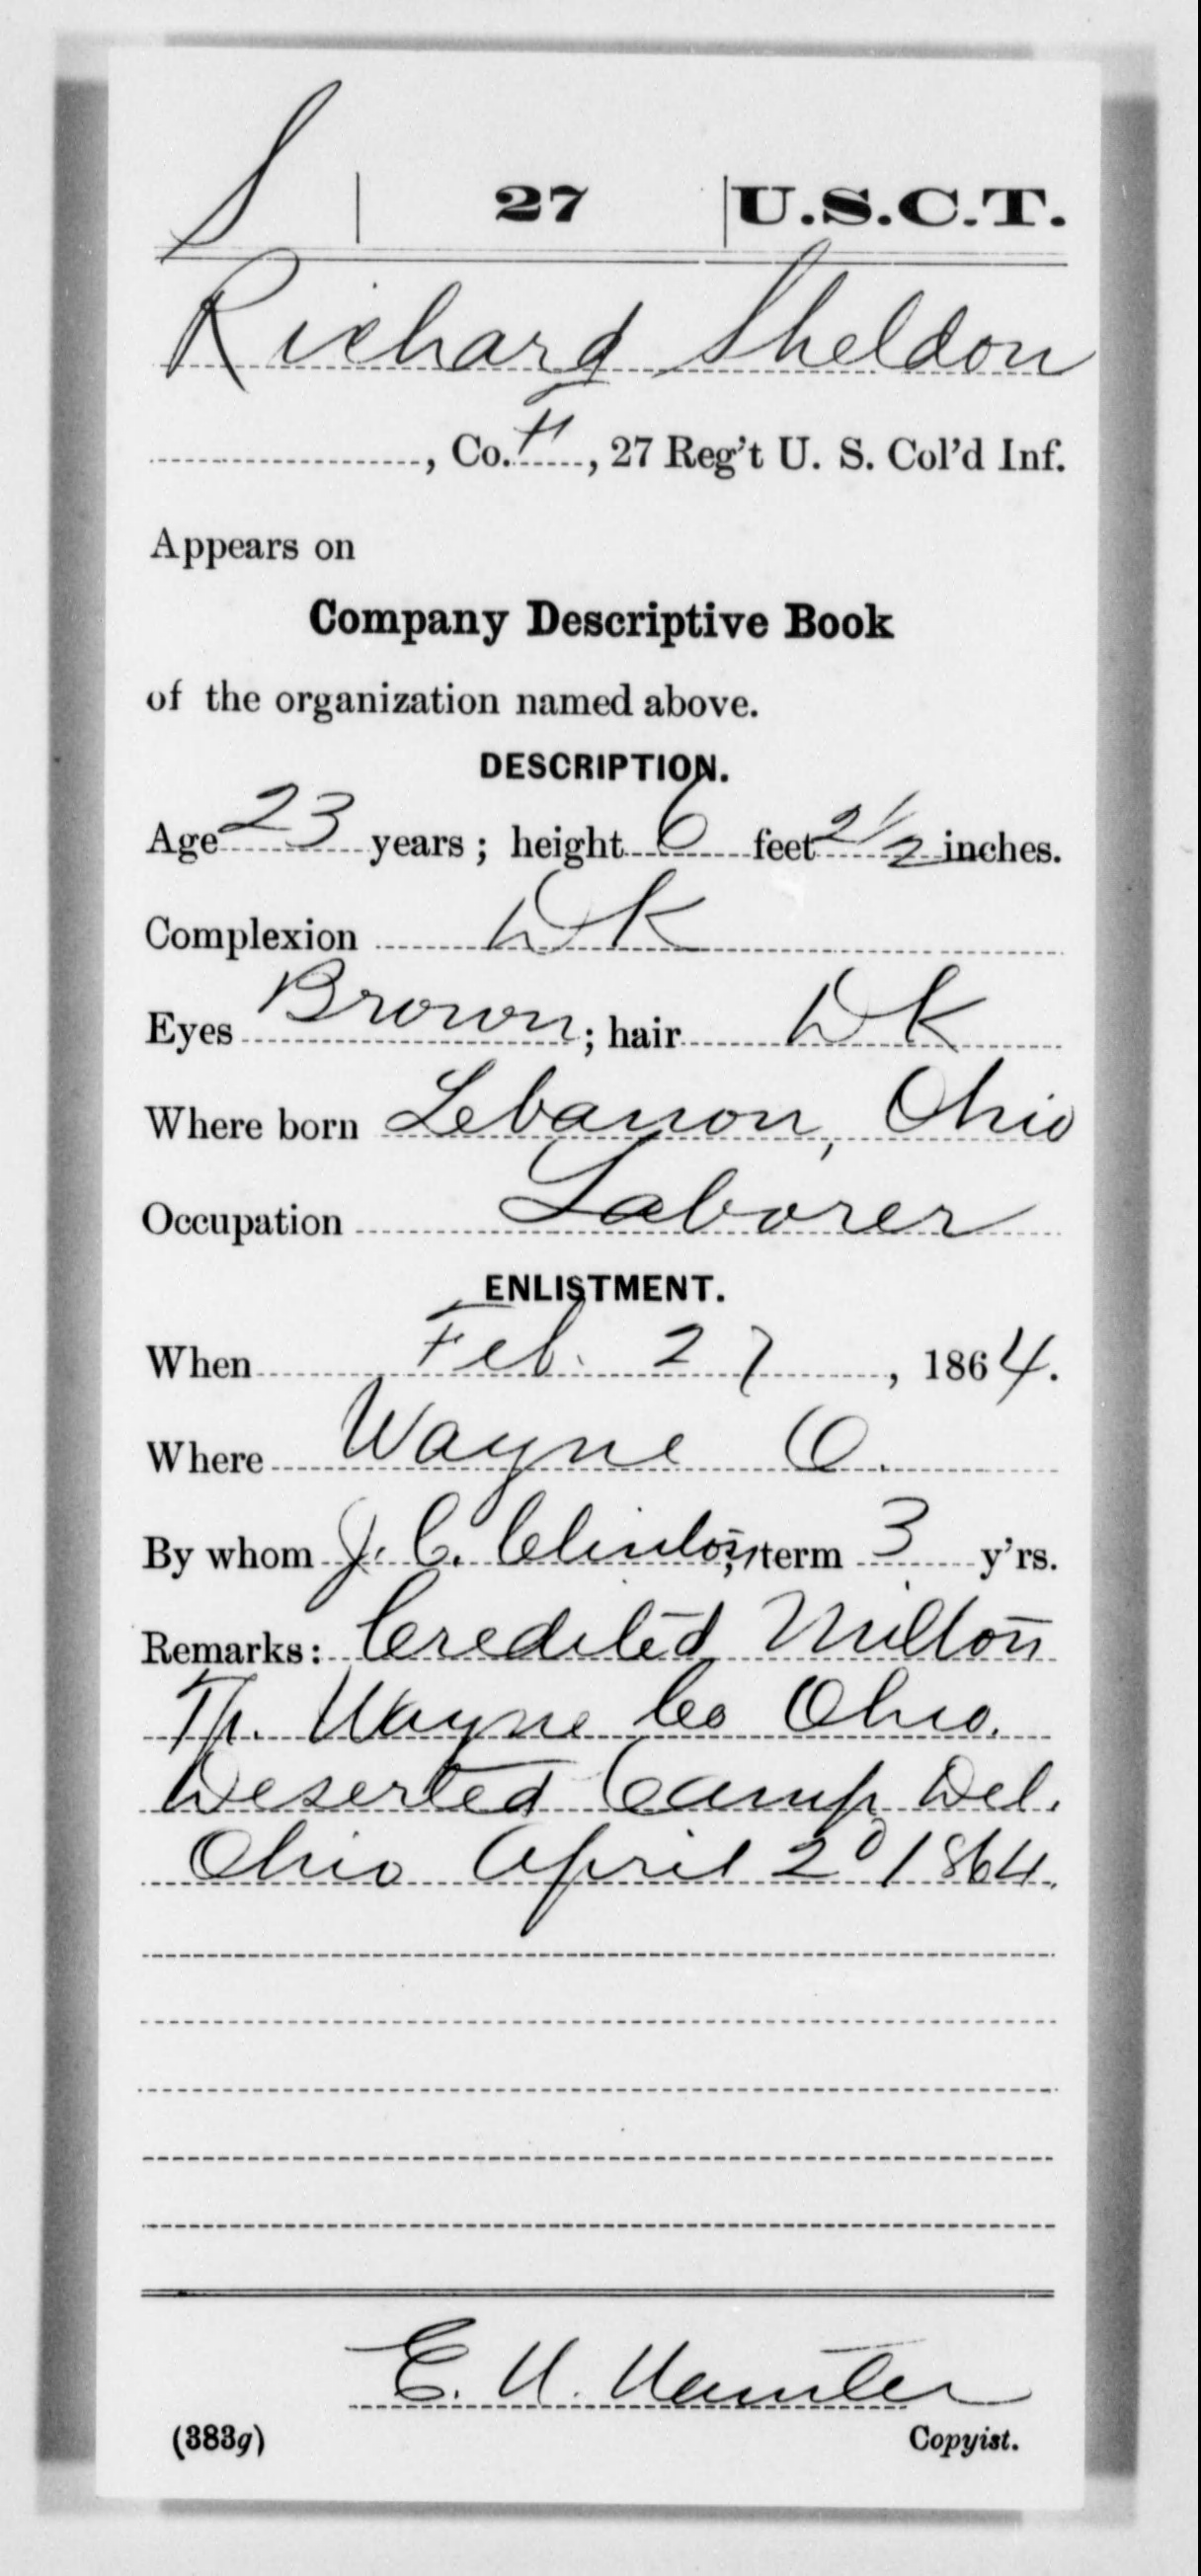 S | 27 | U.S.C.T.
Richard Sheldon
, Co. H, 27 Reg't U. S. Col'd Inf.
Appears on
Company Descriptive Book
of the organization named above.
DESCRIPTION.
Age 23 years; height 6 feet 2 1/2 inches.
Complexion Dk
Eyes Brown; hair Dk
Where born Lebanon, Ohio
Occupation Laborer
ENLISTMENT.
When Feb. 27, 1864.
Where Wayne O.
By whom J. C. Clinton; term 3 y'rs.
Remarks: Credited Milton
Tp. Wayne Co Ohio.
Deserted Camp Del.
Ohio April 2d 1864.
E. W.
(383g) Copyist.